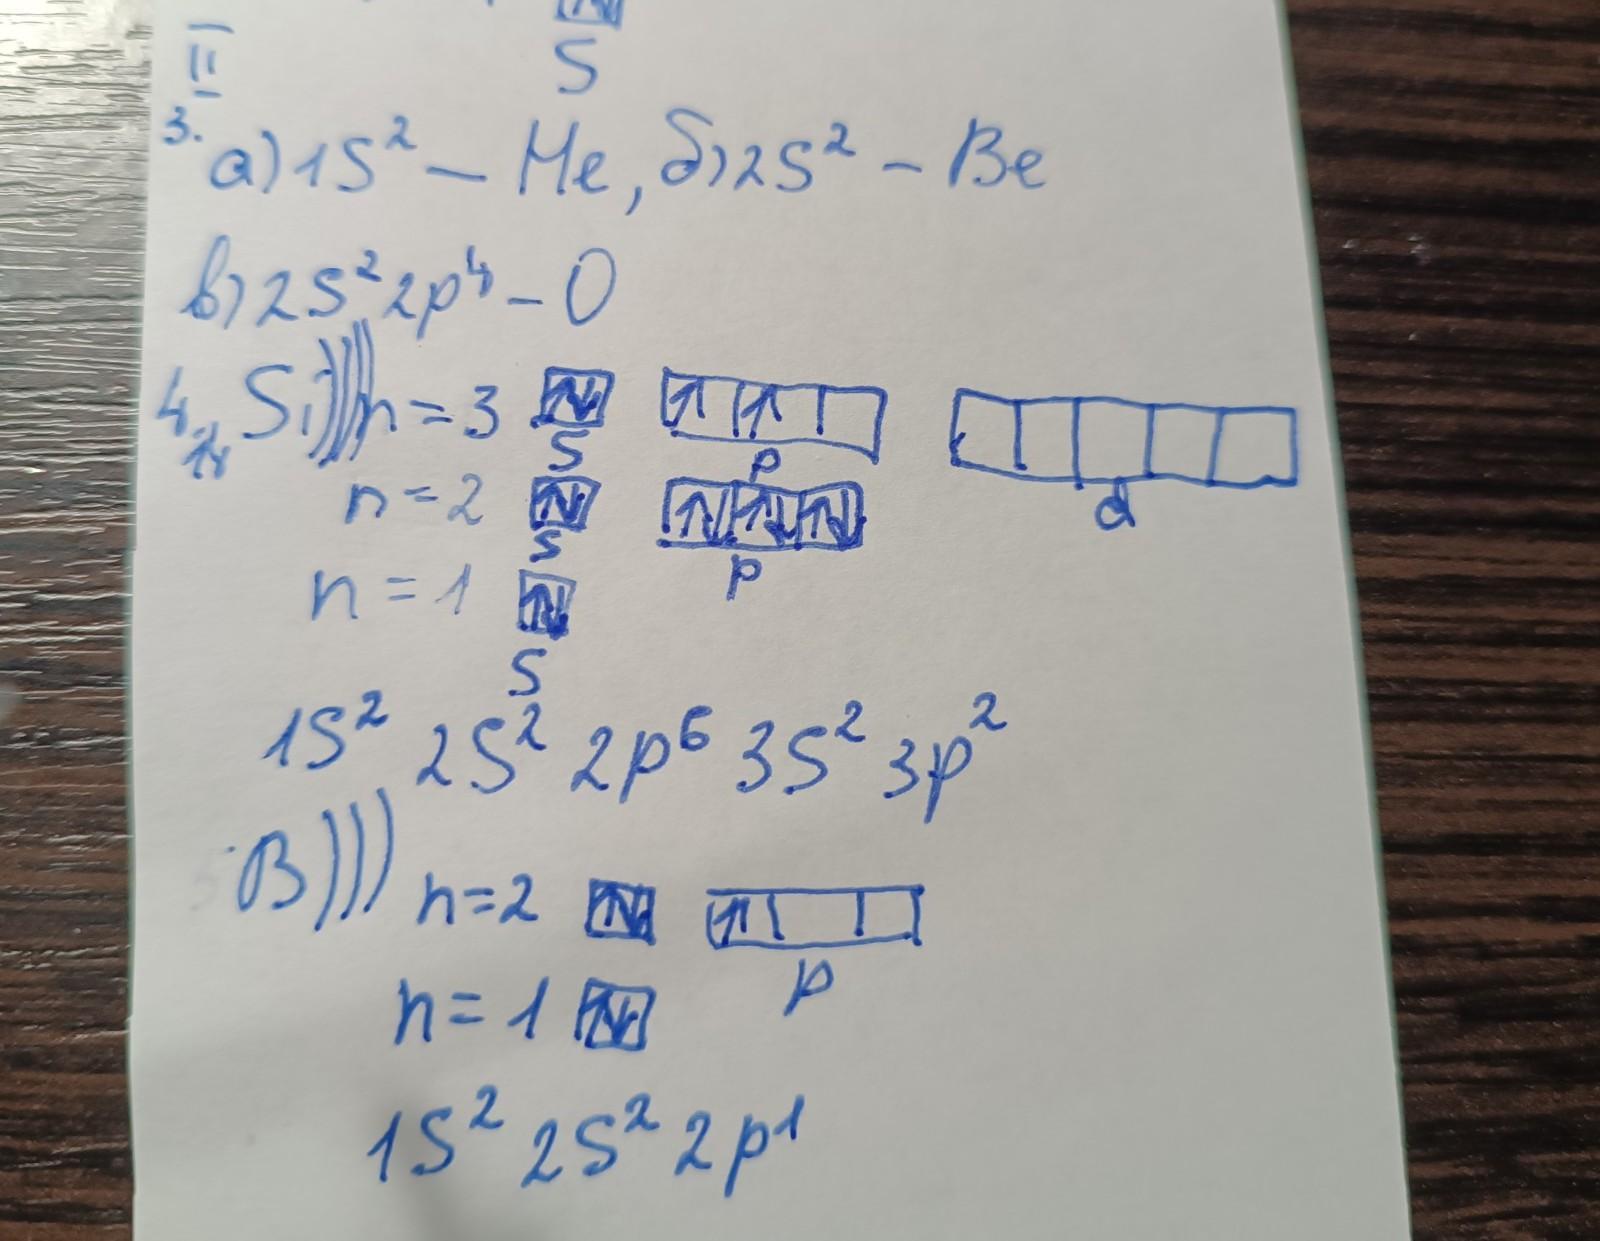 S
II
3. а) 1S² – He, б) 2S² – Be
в) 2S² 2p⁴ – O
4. Si))) n = 3
S p d
n = 2
S p
n = 1
S
1S² 2S² 2p⁶ 3S² 3p²
B))) n=2
p
n = 1
1S² 2S² 2p¹